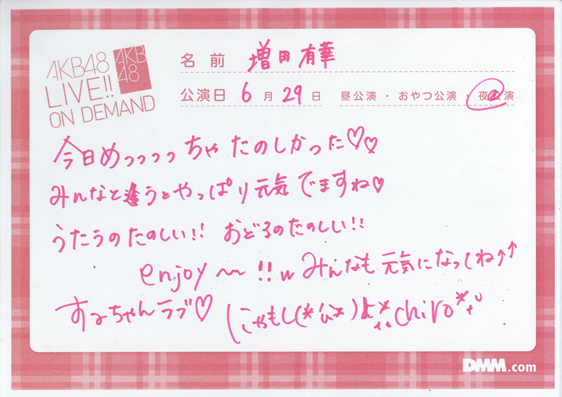 AKB48
LIVE!!
ON DEMAND
AKB
48
名前 増田有華
公演日 6月29日 昼公演・おやつ公演・夜公演
今日めっっっっちゃたのしかった♡♡
みんなと違うとやっぱり元気でますね♡
うたうのたのしい!! おどるのたのしい!!
enjoy〜!!w みんなも元気になってね↑↑
ちゃんラブ♡ chiro
DMM.com